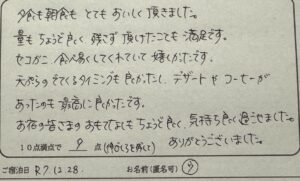 夕食も朝食もとてもおいしく頂きました。
量もちょうど良く残さず頂けたことも満足です。
セコガニ、食べ易くしてくれていて嬉しかったです。
天ぷらのでてくるタイミングも良かったし、デザートやコーヒーが
あったのも最高に良かったです。
お宿の皆さまのおもてなしもちょうど良く、気持ち良く過せました。
10点満点で 9 点 ありがとうございました。
ご宿泊日 R7.12.28. お名前(匿名可)